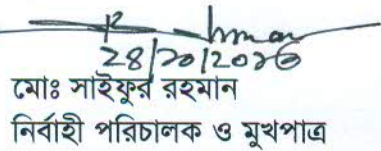 28/10/2025
মোঃ সাইফুর রহমান
নির্বাহী পরিচালক ও মুখপাত্র